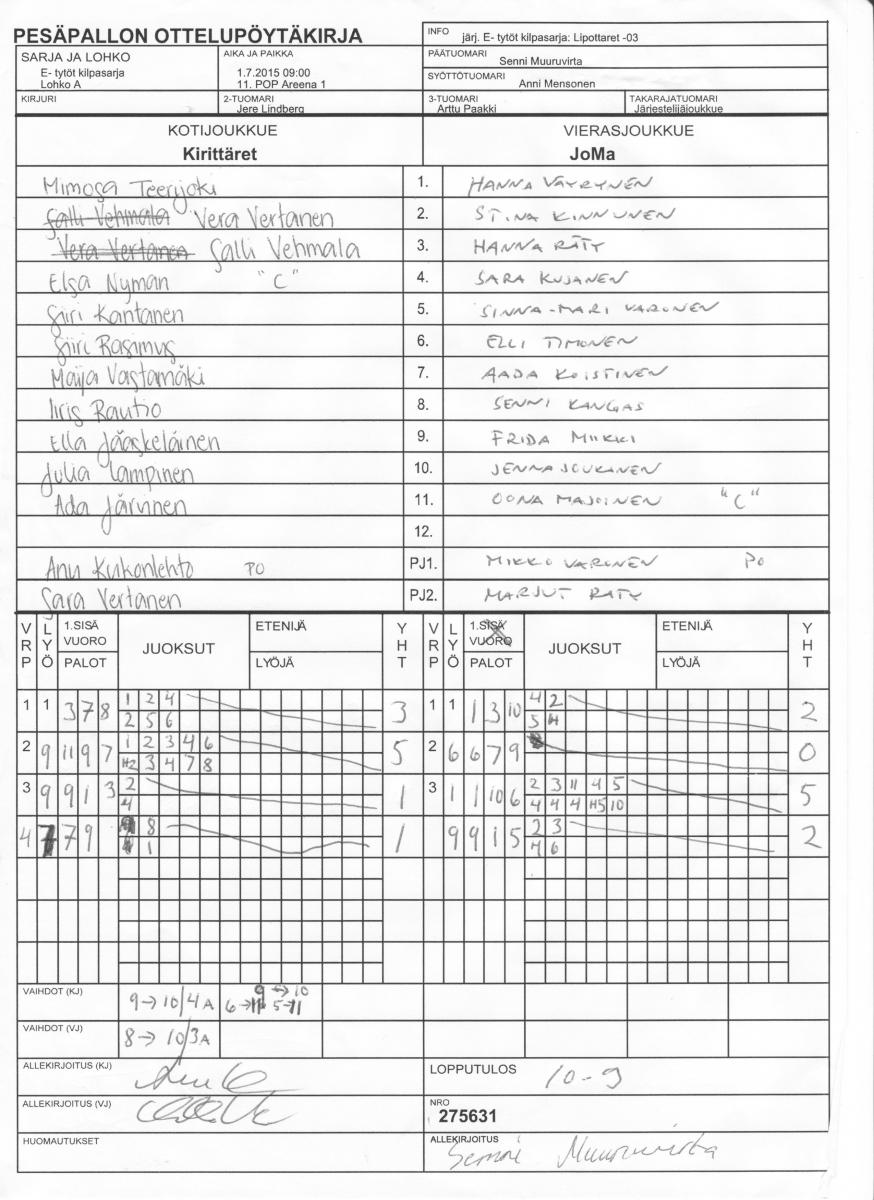 PESÄPALLON OTTELUPÖYTÄKIRJA
INFO järj. E- tytöt kilpasarja: Lipottaret -03
SARJA JA LOHKO
E- tytöt kilpasarja
Lohko A
AIKA JA PAIKKA
1.7.2015 09:00
11. POP Areena 1
PÄÄTUOMARI Senni Muuruvirta
SYÖTTÖTUOMARI Anni Mensonen
KIRJURI
2-TUOMARI Jere Lindberg
3-TUOMARI Arttu Paakki
TAKARAJATUOMARI Järjestelijäjoukkue
KOTIJOUKKUE VIERASJOUKKUE
Kirittäret JoMa
Mimosa Teerijoki 1. HANNA VÄYRYNEN
Salli Vehmala Vera Vertanen 2. STINA KINNUNEN
Vera Vertanen Salli Vehmala 3. HANNA RÄTY
Elsa Nyman "C" 4. SARA KUJANEN
Siiri Kantanen 5. SINNA-MARI VARONEN
Siiri Rasimus 6. ELLI TIMONEN
Maija Vastamäki 7. AADA KOISTINEN
Iiris Rautio 8. SENNI KANGAS
Ella Jääskeläinen 9. FRIDA MIIKKI
Julia Lampinen 10. JENNA JOUKANEN
Ada Järvinen 11. OONA MAJOINEN "C"
12.
Anu Kukonlehto PO PJ1. MIKKO VARONEN PO
Sara Vertanen PJ2. MARJUT RÄTY
VRP LYÖ 1.SISÄ VUORO PALOT JUOKSUT ETENIJÄ LYÖJÄ YHT VRP LYÖ 1.SISÄ VUORO PALOT JUOKSUT ETENIJÄ LYÖJÄ YHT
1 1 3 7 8 1 2 4 3 1 1 1 3 10 4 2 2
2 5 6 5 H
2 9 11 9 7 1 2 3 4 6 5 2 6 6 7 9 0
H2 3 4 7 8
3 9 9 1 3 2 1 3 1 1 10 6 2 3 11 4 5 5
4 4 4 4 H5 10
4 7 7 9 8 1 9 9 1 5 2 3 2
1 H 6
VAIHDOT (KJ) 9→10/4A 6→11 9→10 5→11
VAIHDOT (VJ) 8→10/3A
ALLEKIRJOITUS (KJ)
LOPPUTULOS 10-9
ALLEKIRJOITUS (VJ)
NRO
275631
HUOMAUTUKSET
ALLEKIRJOITUS Senni Muuruvirta